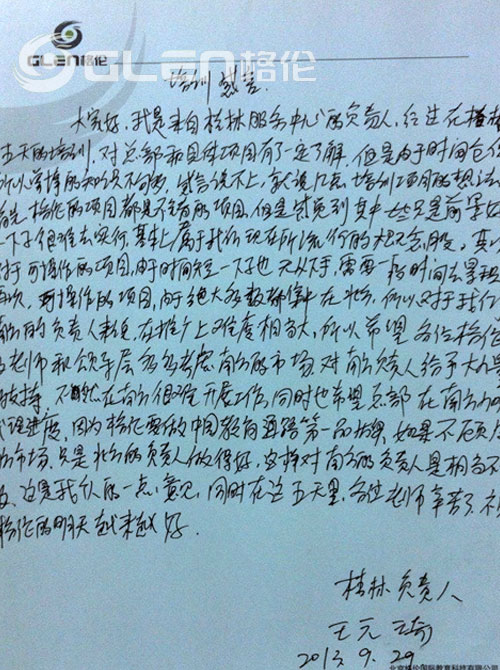 GLEN格伦
GLEN格伦
培训感言
大家好,我是来自桂林服务中心的负责人,经过在
五天的培训,对总部和具体项目有了一定了解,但是由于时间仓促
所以学博的知识不够多,感言说不上,就说几点培训项目的想法
格伦的项目都是不错的项目,但是感觉到其中一些只是前景好
一下子很难去实行,基本上属于我们现在所流行的概念股,
对于可操作的项目,由于时间短一下子也无从下手,需要一段时间去
再次,可操作的项目,由于绝大多数都集中在北方,所以对于我们
南方的负责人来说,在推广上难度相当大,所以希望各位格伦
老师和领导层多多考虑南方的市场,对南方负责人给予大力
扶持,不然在南方很难开展工作,同时也希望总部在南方的
进度,因为格伦要做中国教育连锁第一品牌,如果不顾及
市场,只是北方的负责人做得好,这样对南方的负责人是相当不
这是我个人的一点意见,同时在这五天里,各位老师辛苦了,祝
格伦的明天越来越好.
桂林负责人
王元琦
2013.9.29
北京格伦国际教育科技有限公司